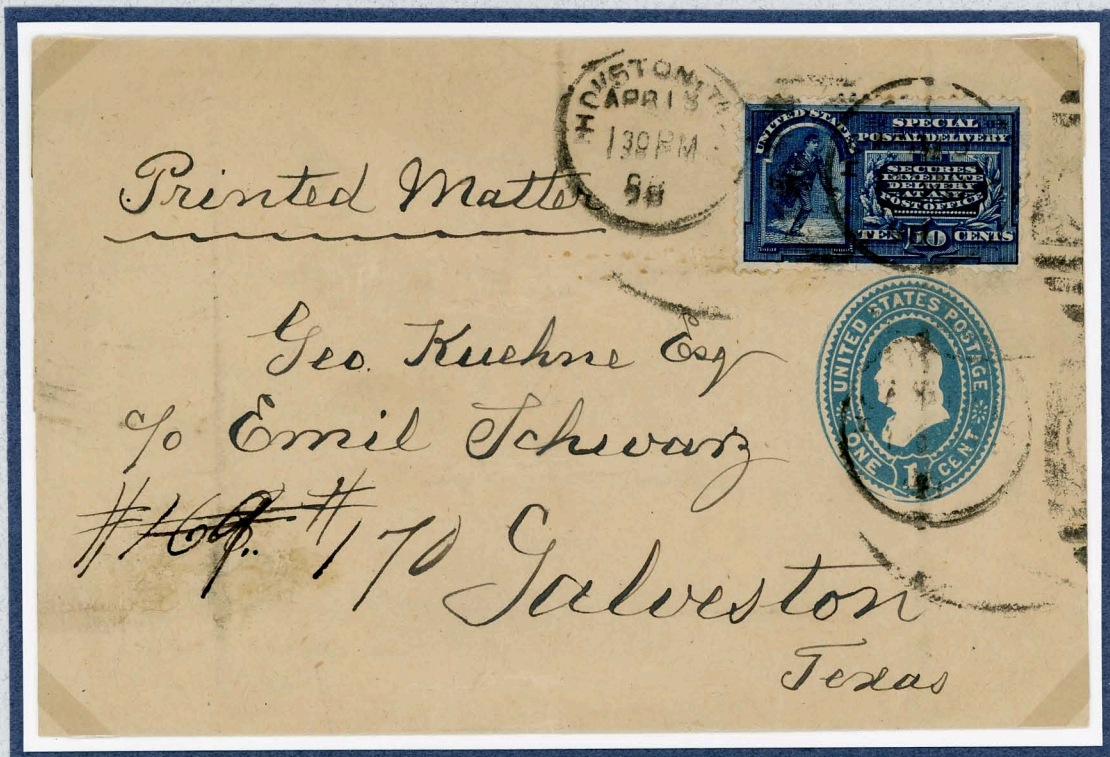 HOUSTON, TEX.
APR 13
130 PM
98
UNITED STATES
SPECIAL
POSTAL DELIVERY
SECURES
IMMEDIATE
DELIVERY
AT ANY
POST OFFICE
TEN 10 CENTS
Printed Matter
UNITED STATES POSTAGE
ONE 1 CENT
Geo. Kuehne Esq
c/o Emil Schwarz
#169. #170 Galveston
Texas